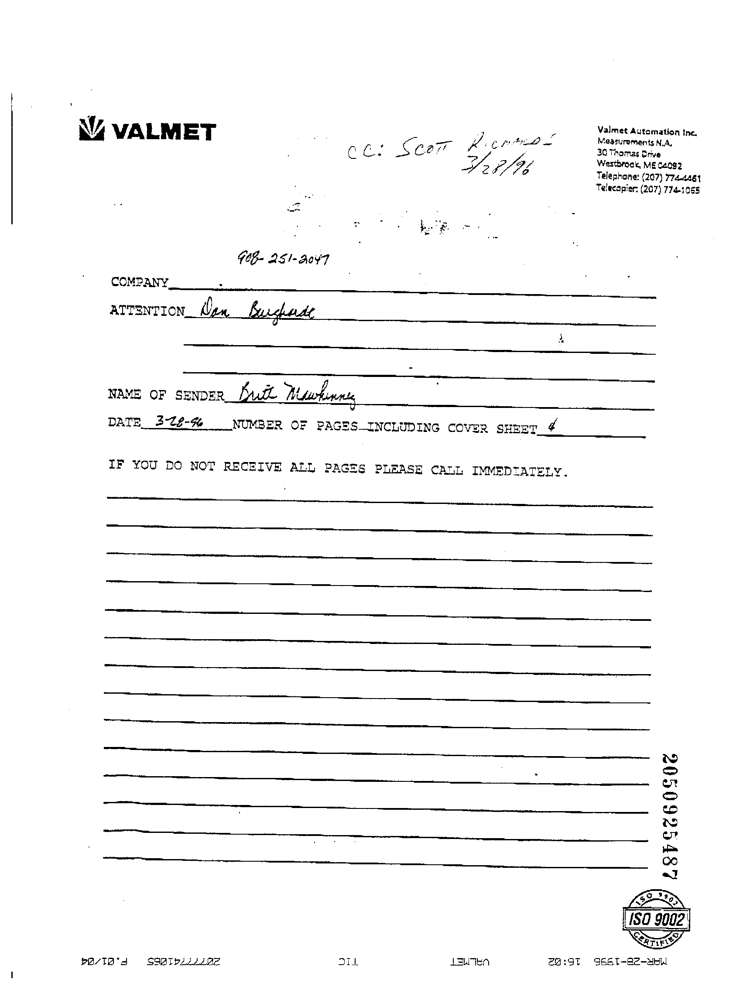 VALMET
Valmet Automation Inc.
Measurements N.A.
30 Thomas Drive
Westbrook, ME 04092
Telephone: (207) 774-4461
Telecopier: (207) 774-1065
CC: SCOTT
3/28/96
908-251-2047
COMPANY
ATTENTION Dan Burghardt
NAME OF SENDER Britt Mawhinney
DATE 3-28-96 NUMBER OF PAGES INCLUDING COVER SHEET 4
IF YOU DO NOT RECEIVE ALL PAGES PLEASE CALL IMMEDIATELY.
2050925487
ISO 9002
ISO 9002
CERTIFIED
MAR-28-1996 16:02 VALMET TIC 2077741065 P.01/04